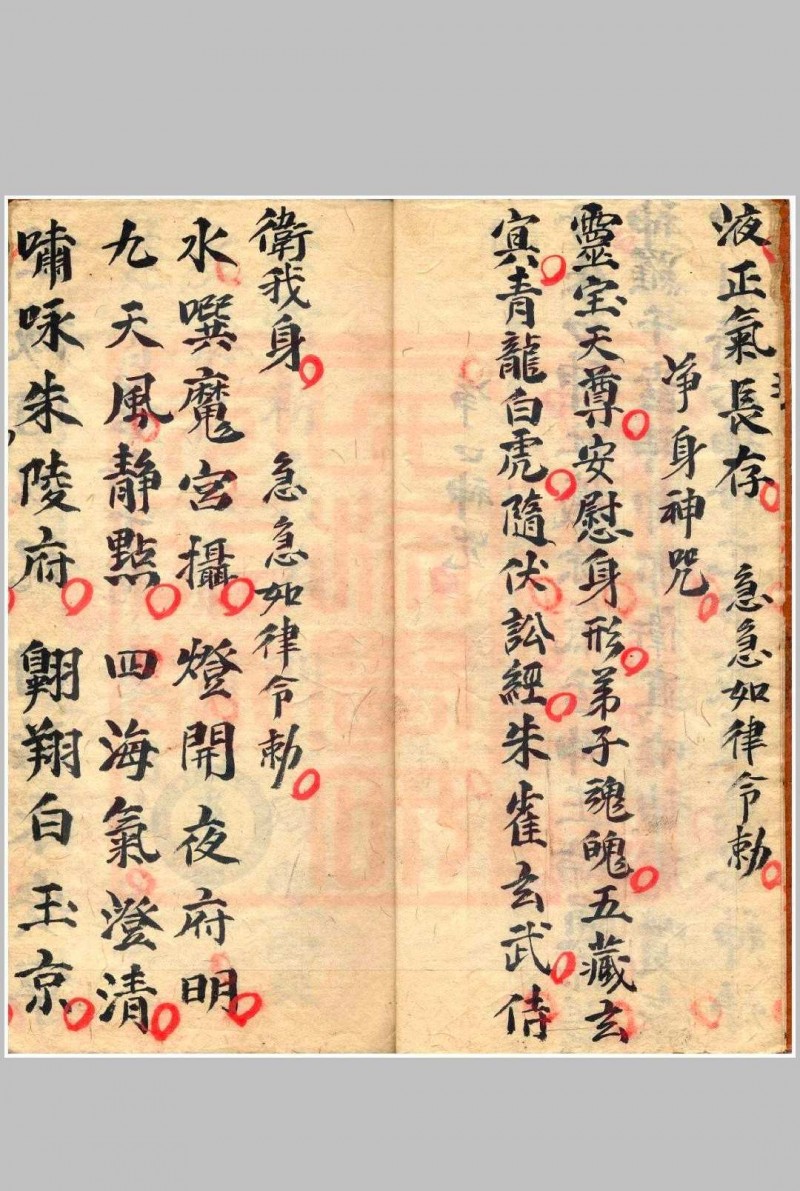 液正氣長存 急急如律令勅
净身神咒
靈宝天尊安慰身形弟子魂魄五藏玄
㝠青龍白虎隨伏訟經朱雀玄武侍
衛我身 急急如律令勅
水噀魔宮攝 燈開夜府明
九天風静點 四海氣澄清
嘯咏朱陵府 翱翔白玉京